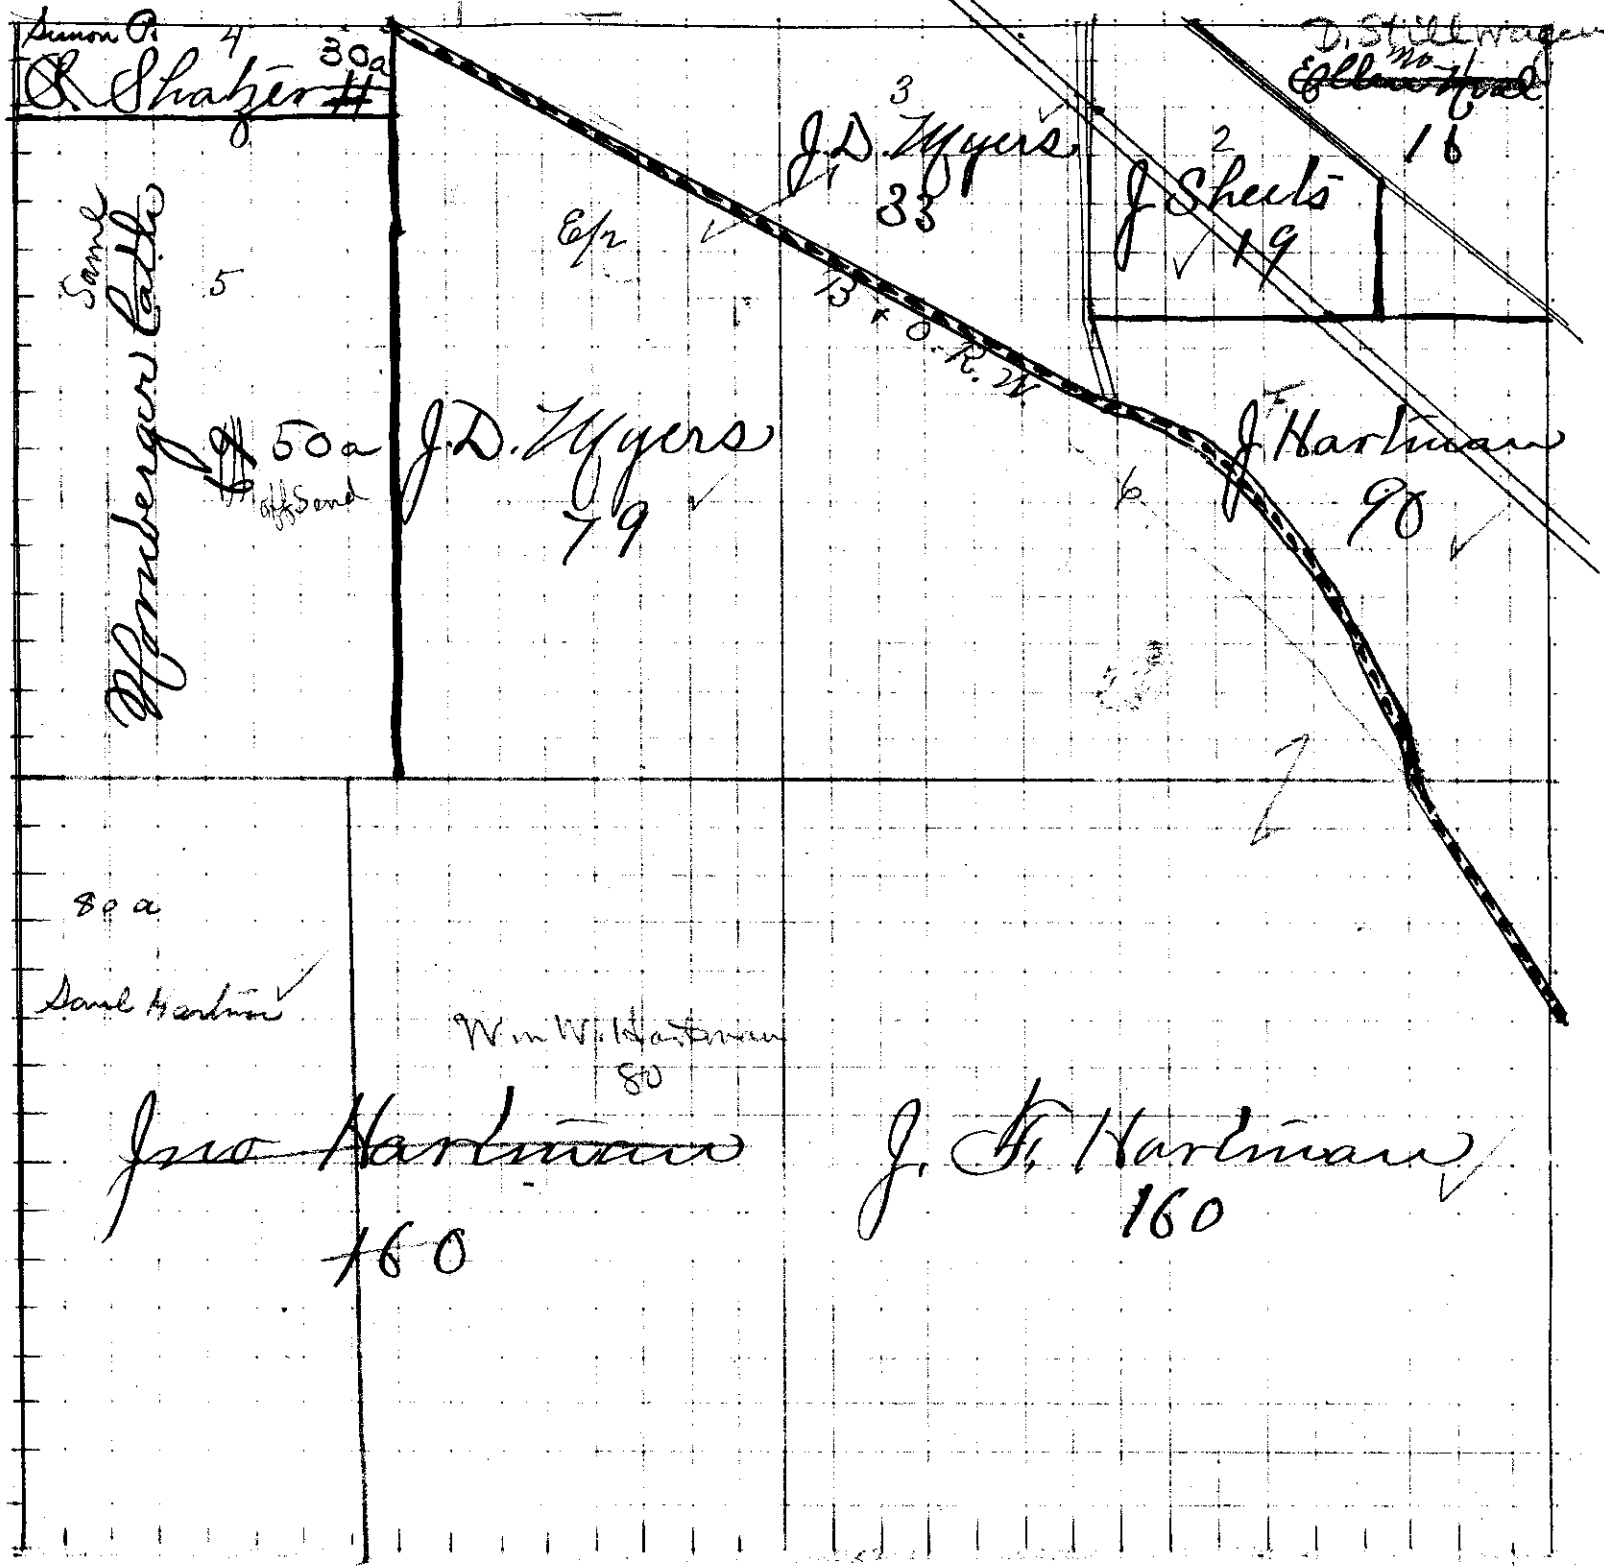 Simon P. 4 30a
S. Shatzer 11
D. Stillwagen
Mo
Ellen
16
3
J.D. Myers
33
2
J Sheets
19
E/2
Saml
5
Mornberger Cath
50a
off S end
B & O. R. W.
J.D. Myers
79
J F Hartman
90
6
80 a
Saml Hartman
Wm W. Hartman
80
Jno Hartman
160
J. F. Hartman
160